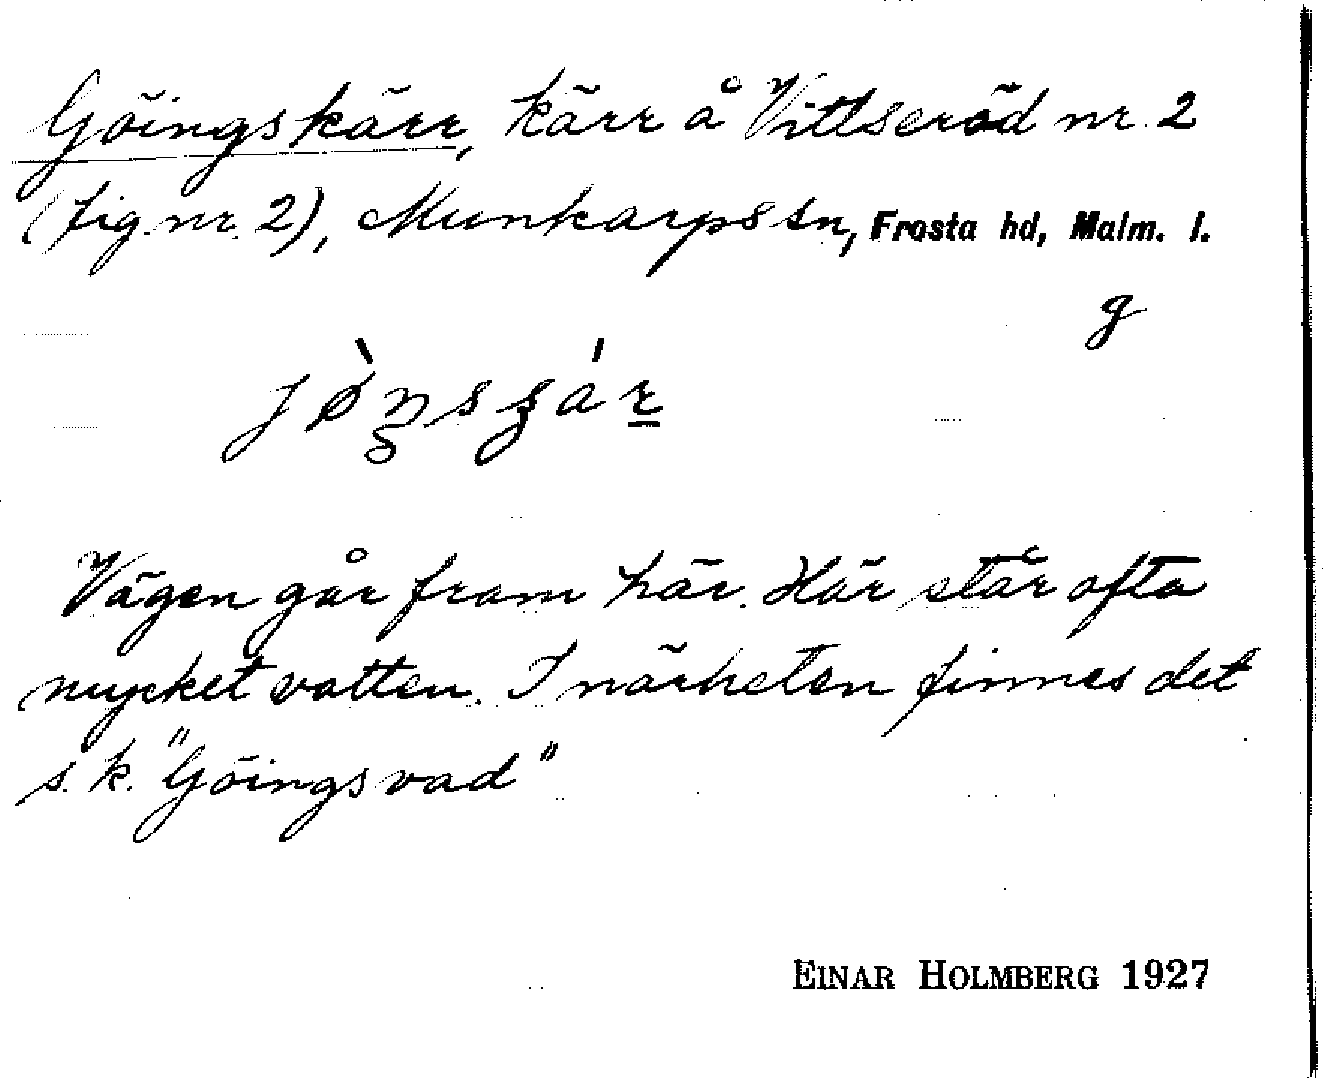 Göingskärr, kärr å Vittseröd nr. 2
(fig. nr. 2), Munkarps sn, Frosta hd, Malm. l.
g
Vägen går fram här. Här står ofta
mycket vatten. I närheten finnes det
s. k. "Göingsvad"
EINAR HOLMBERG 1927